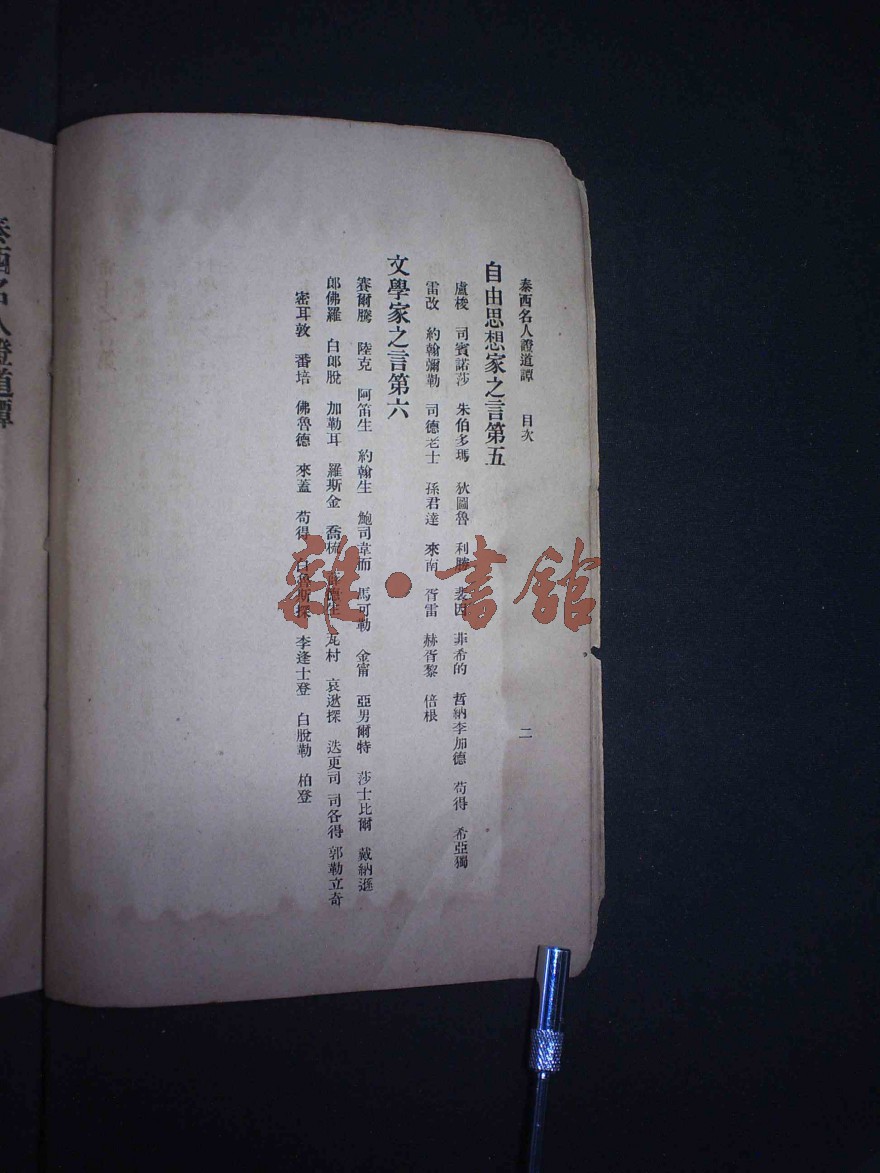 泰西名人證道譚 目次 二
自由思想家之言第五
盧梭 司賓諾莎 朱伯多瑪 狄圖魯 利勝 裴因 菲希的 哲納李加德 苟得 希亞獨
雷改 約翰彌勒 司德老士 孫君達 來南 胥雷 赫胥黎 倍根
文學家之言第六
賽爾騰 陸克 阿笛生 約翰生 鮑司韋而 馬可勒 金甯 亞男爾特 莎士比爾 戴納遜
郎佛羅 白郎脫 加勒耳 羅斯金 喬梳 瓦村 哀遬探 迭更司 司各得 郭勒立奇
密耳敦 番培 佛魯德 來蓋 苟得 白魯斯探 李逢士登 白脫勒 柏登
泰西名人證道譚
雜·書館